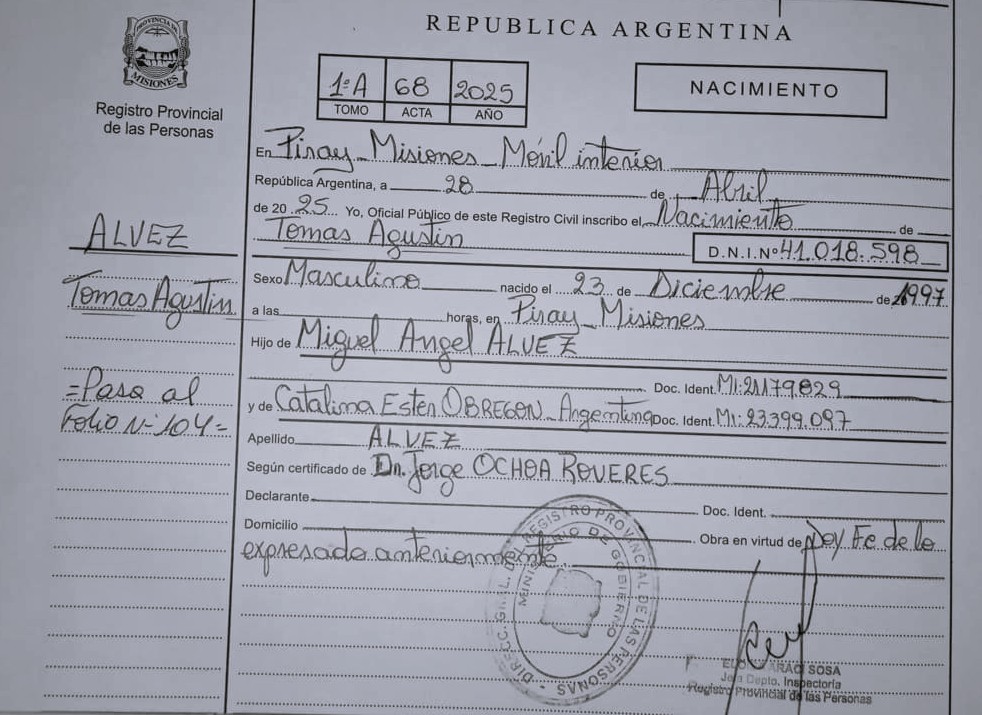 PROVINCIA DE
MISIONES
Registro Provincial
de las Personas
ALVEZ
Tomas Agustin
=Pasa al
Folio Nº 104=
REPUBLICA ARGENTINA
1ºA 68 2025
TOMO ACTA AÑO
NACIMIENTO
En Piray_Misiones_Móvil interior
República Argentina, a 28 de Abril
de 20 25 Yo, Oficial Público de este Registro Civil inscribo el Nacimiento de
Tomas Agustin D.N.I.Nº 41.018.598
Sexo Masculino nacido el 23 de Diciembre de 1997
a las horas, en Piray_Misiones
Hijo de Miguel Angel ALVEZ
Doc. Ident. MI:21.179.829
y de Catalina Ester OBREGON_Argentina Doc. Ident. MI:23.399.097
Apellido ALVEZ
Según certificado de Dr. Jorge OCHOA ROVERES
Declarante Doc. Ident.
Domicilio Obra en virtud de Doy Fe de lo
expresado anteriormente.
REGISTRO PROVINCIAL DE LAS PERSONAS
MINISTERIO DE GOBIERNO
SOSA
Jefa Depto. Inspectoría
Registro Provincial de las Personas